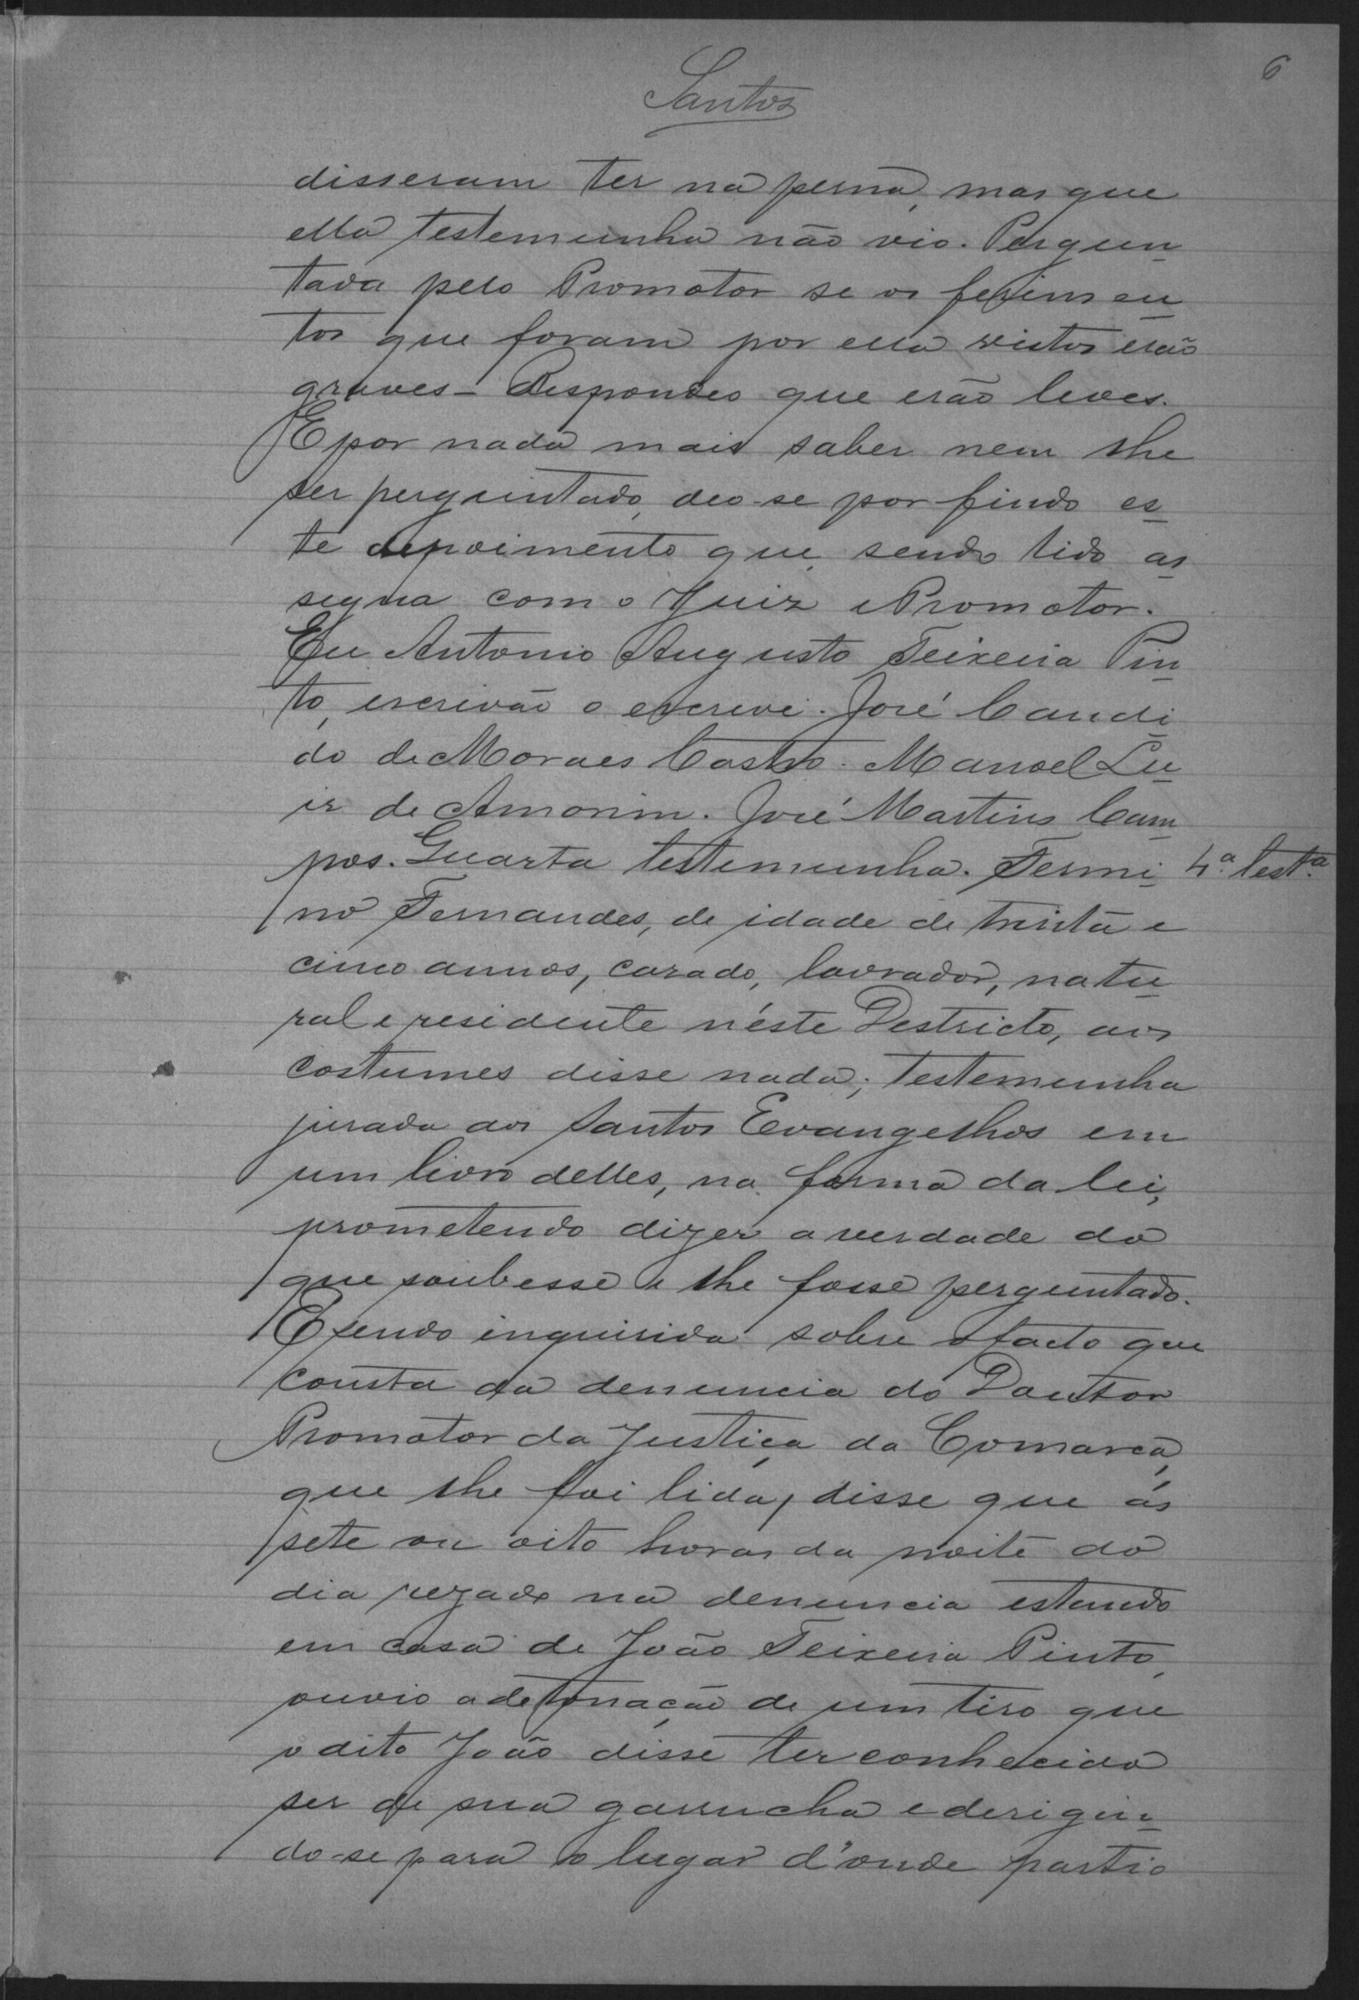 6
Santos
disseram ter na perna, mas que
ella testemunha não vio. Pergun
tada pelo Promotor se os ferimen
tos que foram por ella vistos erão
graves - Respondeo que erão leves.
E por nada mais saber nem lhe
ser perguntado, deo-se por findo es
te depoimento que, sendo lido as
signa com o Juiz e Promotor.
Eu Antonio Augusto Teixeira Pin
to, escrivão o escrevi. José Candi
do de Moraes Castro. Manoel Lu
iz de Amorim. José Martins Cam
pos. Quarta testemunha. Fermi 4.ª test.ª
no Fernandes, de idade de trinta e
cinco annos, casado, lavrador, natu
ral e residente n'éste Destricto, aos
costumes disse nada; testemunha
jurada aos Santos Evangelhos em
um livro delles, na forma da lei,
prometendo dizer a verdade do
que soubesse e lhe fosse perguntado.
E sendo inquirida sobre o facto que
consta da denuncia do Doutor
Promotor da Justiça da Comarca,
que lhe foi lida, disse que ás
sete ou oito horas da noite do
dia rezado na denuncia estando
em casa de João Teixeira Pinto,
ouvio a detonação de um tiro que
o dito João disse ter conhecido
ser de sua garrucha e derigin
do-se para o lugar d'onde partio